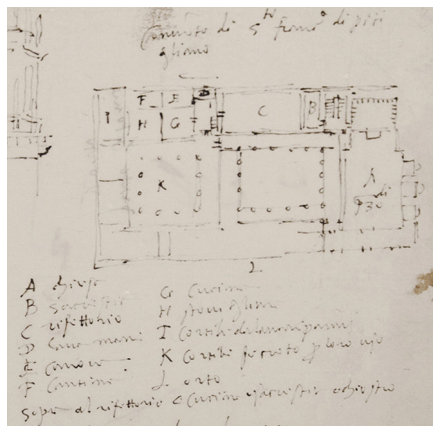 Convento di S.to franc.o di piti
gliano
I F E D C B
H G
K A
di
p 30
L
A chiesa
B sacrestia
C rifettorio
D lava mani
E canova
F cantina
G cucina
H
I cortile da lavar panni
K cortile per loro uso
L orto
sopra al rifettorio e cucina e sacrestia